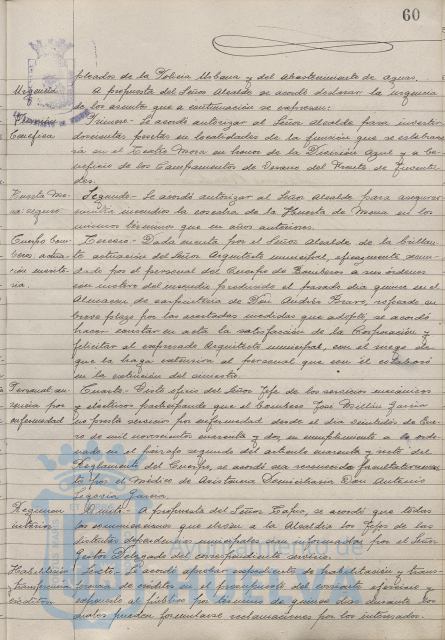 60
pleados de la Policia Urbana y del Abastecimiento de aguas.
Urgencia A propuesta del Señor Alcalde se acordó declarar la urgencia
de los asuntos que a continuación se expresan:
Función Primero - Se acordó autorizar al Señor Alcalde para invertir
benéfica doscientas pesetas en localidades de la función que se celebra
ria en el Teatro Mora en honor de la División Azul y a be
neficio de los Campamentos de Verano del Frente de Juventu
des.
Huerta Me Segundo - Se acordó autorizar al Señor Alcalde para asegurar
na: seguro contra incendios la cosecha de la Huerta de Mena en los
mismos términos que en años anteriores.
Cuerpo Bom Tercero - Dada cuenta por el Señor Alcalde de la brillan
beros, actua te actuación del Señor Arquitecto municipal, eficazmente secun
ción merito dado por el personal del Cuerpo de Bomberos a sus órdenes
ria con motivo del incendio producido el pasado dia quince en el
Almacen de carpinteria de Don Andrés Bravo, sofocado en
breve plazo por las acertadas medidas que adoptó, se acordó
hacer constar en acta la satisfacción de la Corporación y
felicitar al expresado Arquitecto municipal, con el ruego de
que la haga extensiva al personal que con él colaboró
en la extinción del siniestro.
Personal au Cuarto - Visto oficio del Señor Jefe de los servicios mecánicos
sencia por y eléctricos participando que el Bombero José Millán Garcia
enfermedad no presta servicio por enfermedad desde el dia veintidós de Ene
ro de mil novecientos cuarenta y dos, en cumplimiento a lo orde
nado en el párrafo segundo del artículo cuarenta y siete del
Reglamento del Cuerpo, se acordó sea reconocido facultativamen
te por el Médico de Asistencia Domiciliaria Don Antonio
Segovia Garcia.
Regimen Quinto - A propuesta del Señor Tapia, se acordó que todas
interior las comunicaciones que eleven a la Alcaldia los Jefes de las
distintas dependencias municipales sean informadas por el Señor
Gestor Delegado del correspondiente servicio.
Habilitación Sexto - Se acordó aprobar expediente de habilitación y trans
y transferencia ferencia de créditos en el presupuesto del corriente ejercicio y
créditos. exponerlo al público por término de quince dias durante los
cuales pueden formularse reclamaciones por los interesados.